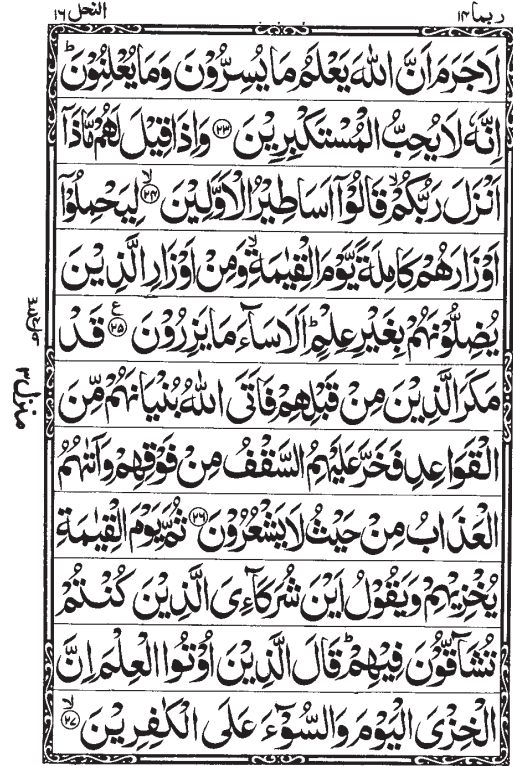 ربما ١٤
النحل ١٦
لَا جَرَمَ اَنَّ اللّٰهَ يَعْلَمُ مَا يُسِرُّوْنَ وَمَا يُعْلِنُوْنَ ؕ
اِنَّهٗ لَا يُحِبُّ الْمُسْتَكْبِرِيْنَ ﴿۲۳﴾ وَاِذَا قِيْلَ لَهُمْ مَّاذَاۤ
اَنْزَلَ رَبُّكُمْ ۙ قَالُوْۤا اَسَاطِيْرُ الْاَوَّلِيْنَ ﴿۲۴﴾ ۙ لِيَحْمِلُوْۤا
اَوْزَارَهُمْ كَامِلَةً يَّوْمَ الْقِيٰمَةِ ۙ وَمِنْ اَوْزَارِ الَّذِيْنَ
يُضِلُّوْنَهُمْ بِغَيْرِ عِلْمٍ ؕ اَلَا سَآءَ مَا يَزِرُوْنَ ﴿۲۵﴾ ع قَدْ
مَكَرَ الَّذِيْنَ مِنْ قَبْلِهِمْ فَاَتَى اللّٰهُ بُنْيَانَهُمْ مِّنَ
الْقَوَاعِدِ فَخَرَّ عَلَيْهِمُ السَّقْفُ مِنْ فَوْقِهِمْ وَاَتٰىهُمُ
الْعَذَابُ مِنْ حَيْثُ لَا يَشْعُرُوْنَ ﴿۲۶﴾ ثُمَّ يَوْمَ الْقِيٰمَةِ
يُخْزِيْهِمْ وَيَقُوْلُ اَيْنَ شُرَكَآءِىَ الَّذِيْنَ كُنْتُمْ
تُشَآقُّوْنَ فِيْهِمْ ؕ قَالَ الَّذِيْنَ اُوْتُوا الْعِلْمَ اِنَّ
الْخِزْىَ الْيَوْمَ وَالسُّوْٓءَ عَلَى الْكٰفِرِيْنَ ﴿۲۷﴾ ۙ
منزل ۳